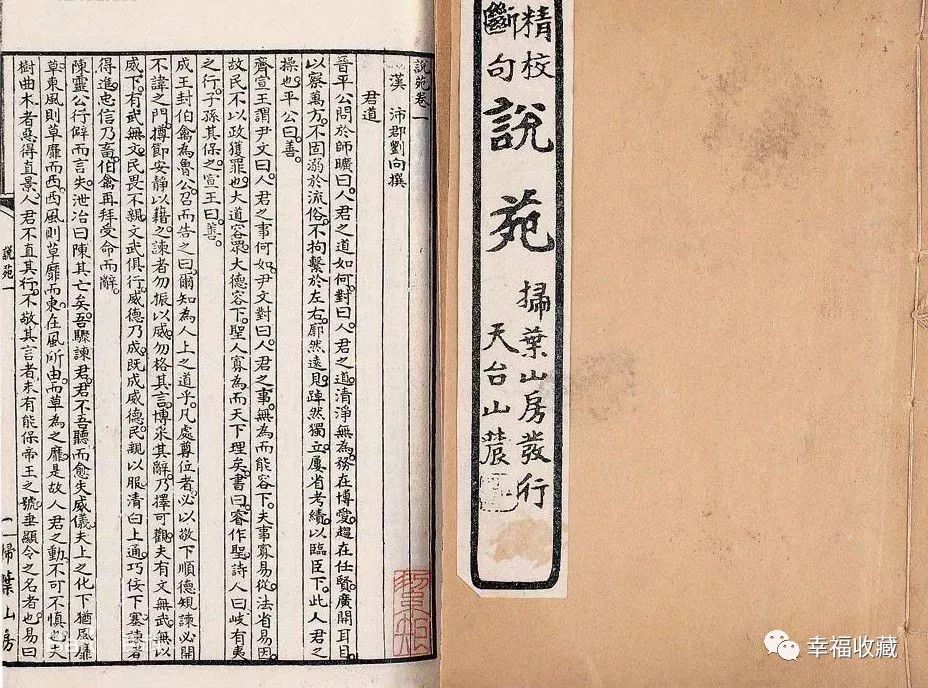 精校
斷句
說苑
掃葉山房發行
天台山農
說苑卷一
漢 沛郡劉向撰
君道
晉平公問於師曠曰。人君之道如何。對曰。人君之道。清淨無為。務在博愛。趨在任賢。廣開耳目。
以察萬方。不固溺於流俗。不拘繫於左右。廓然遠見。踔然獨立。屢省考績。以臨臣下。此人君之
操也。平公曰。善。
齊宣王謂尹文曰。人君之事何如。尹文對曰。人君之事。無為而能容下。夫事寡易從。法省易因。
故民不以政獲罪也。大道容眾。大德容下。聖人寡為而天下理矣。書曰。睿作聖。詩人曰。岐有夷
之行。子孫其保之。宣王曰。善。
成王封伯禽為魯公。召而告之曰。爾知為人上之道乎。凡處尊位者。必以敬下順德規諫。必開
不諱之門。撙節安靜以藉之。諫者勿振以威。勿格其言。博采其辭。乃擇可觀。夫有文無武。無以
威下。有武無文。民畏不親。文武俱行。威德乃成。既成威德。民親以服。清白上通。巧佞下塞。諫者
得進。忠信乃畜。伯禽再拜受命而辭。
陳靈公行僻而言失。泄冶曰。陳其亡矣。吾驟諫君。君不吾聽而愈失威儀。夫上之化下。猶風靡
草。東風則草靡而西。西風則草靡而東。在風所由。而草為之靡。是故人君之動。不可不慎也。夫
樹曲木者。惡得直景。人君不直其行。不敬其言者。未有能保帝王之號。垂顯令之名者也。易曰
說苑一
一 掃葉山房
幸福收藏